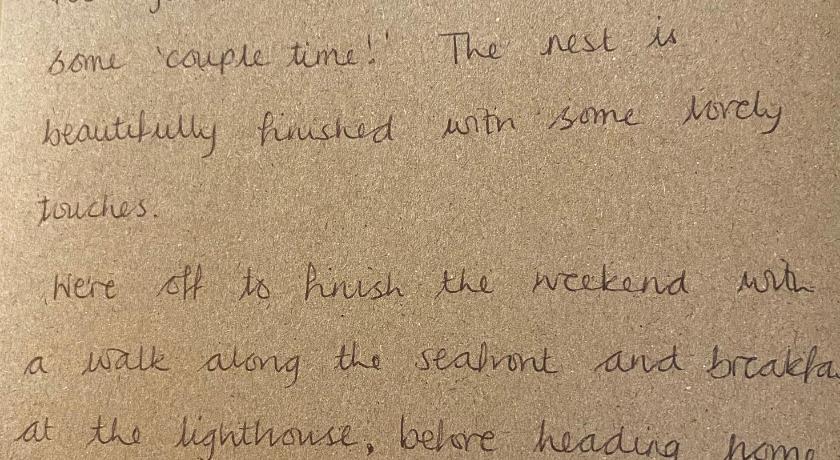 some 'couple time!' The nest is
beautifully finished with some lovely
touches.
Were off to finish the weekend with
a walk along the seafront and breakfa
at the lighthouse, before heading home